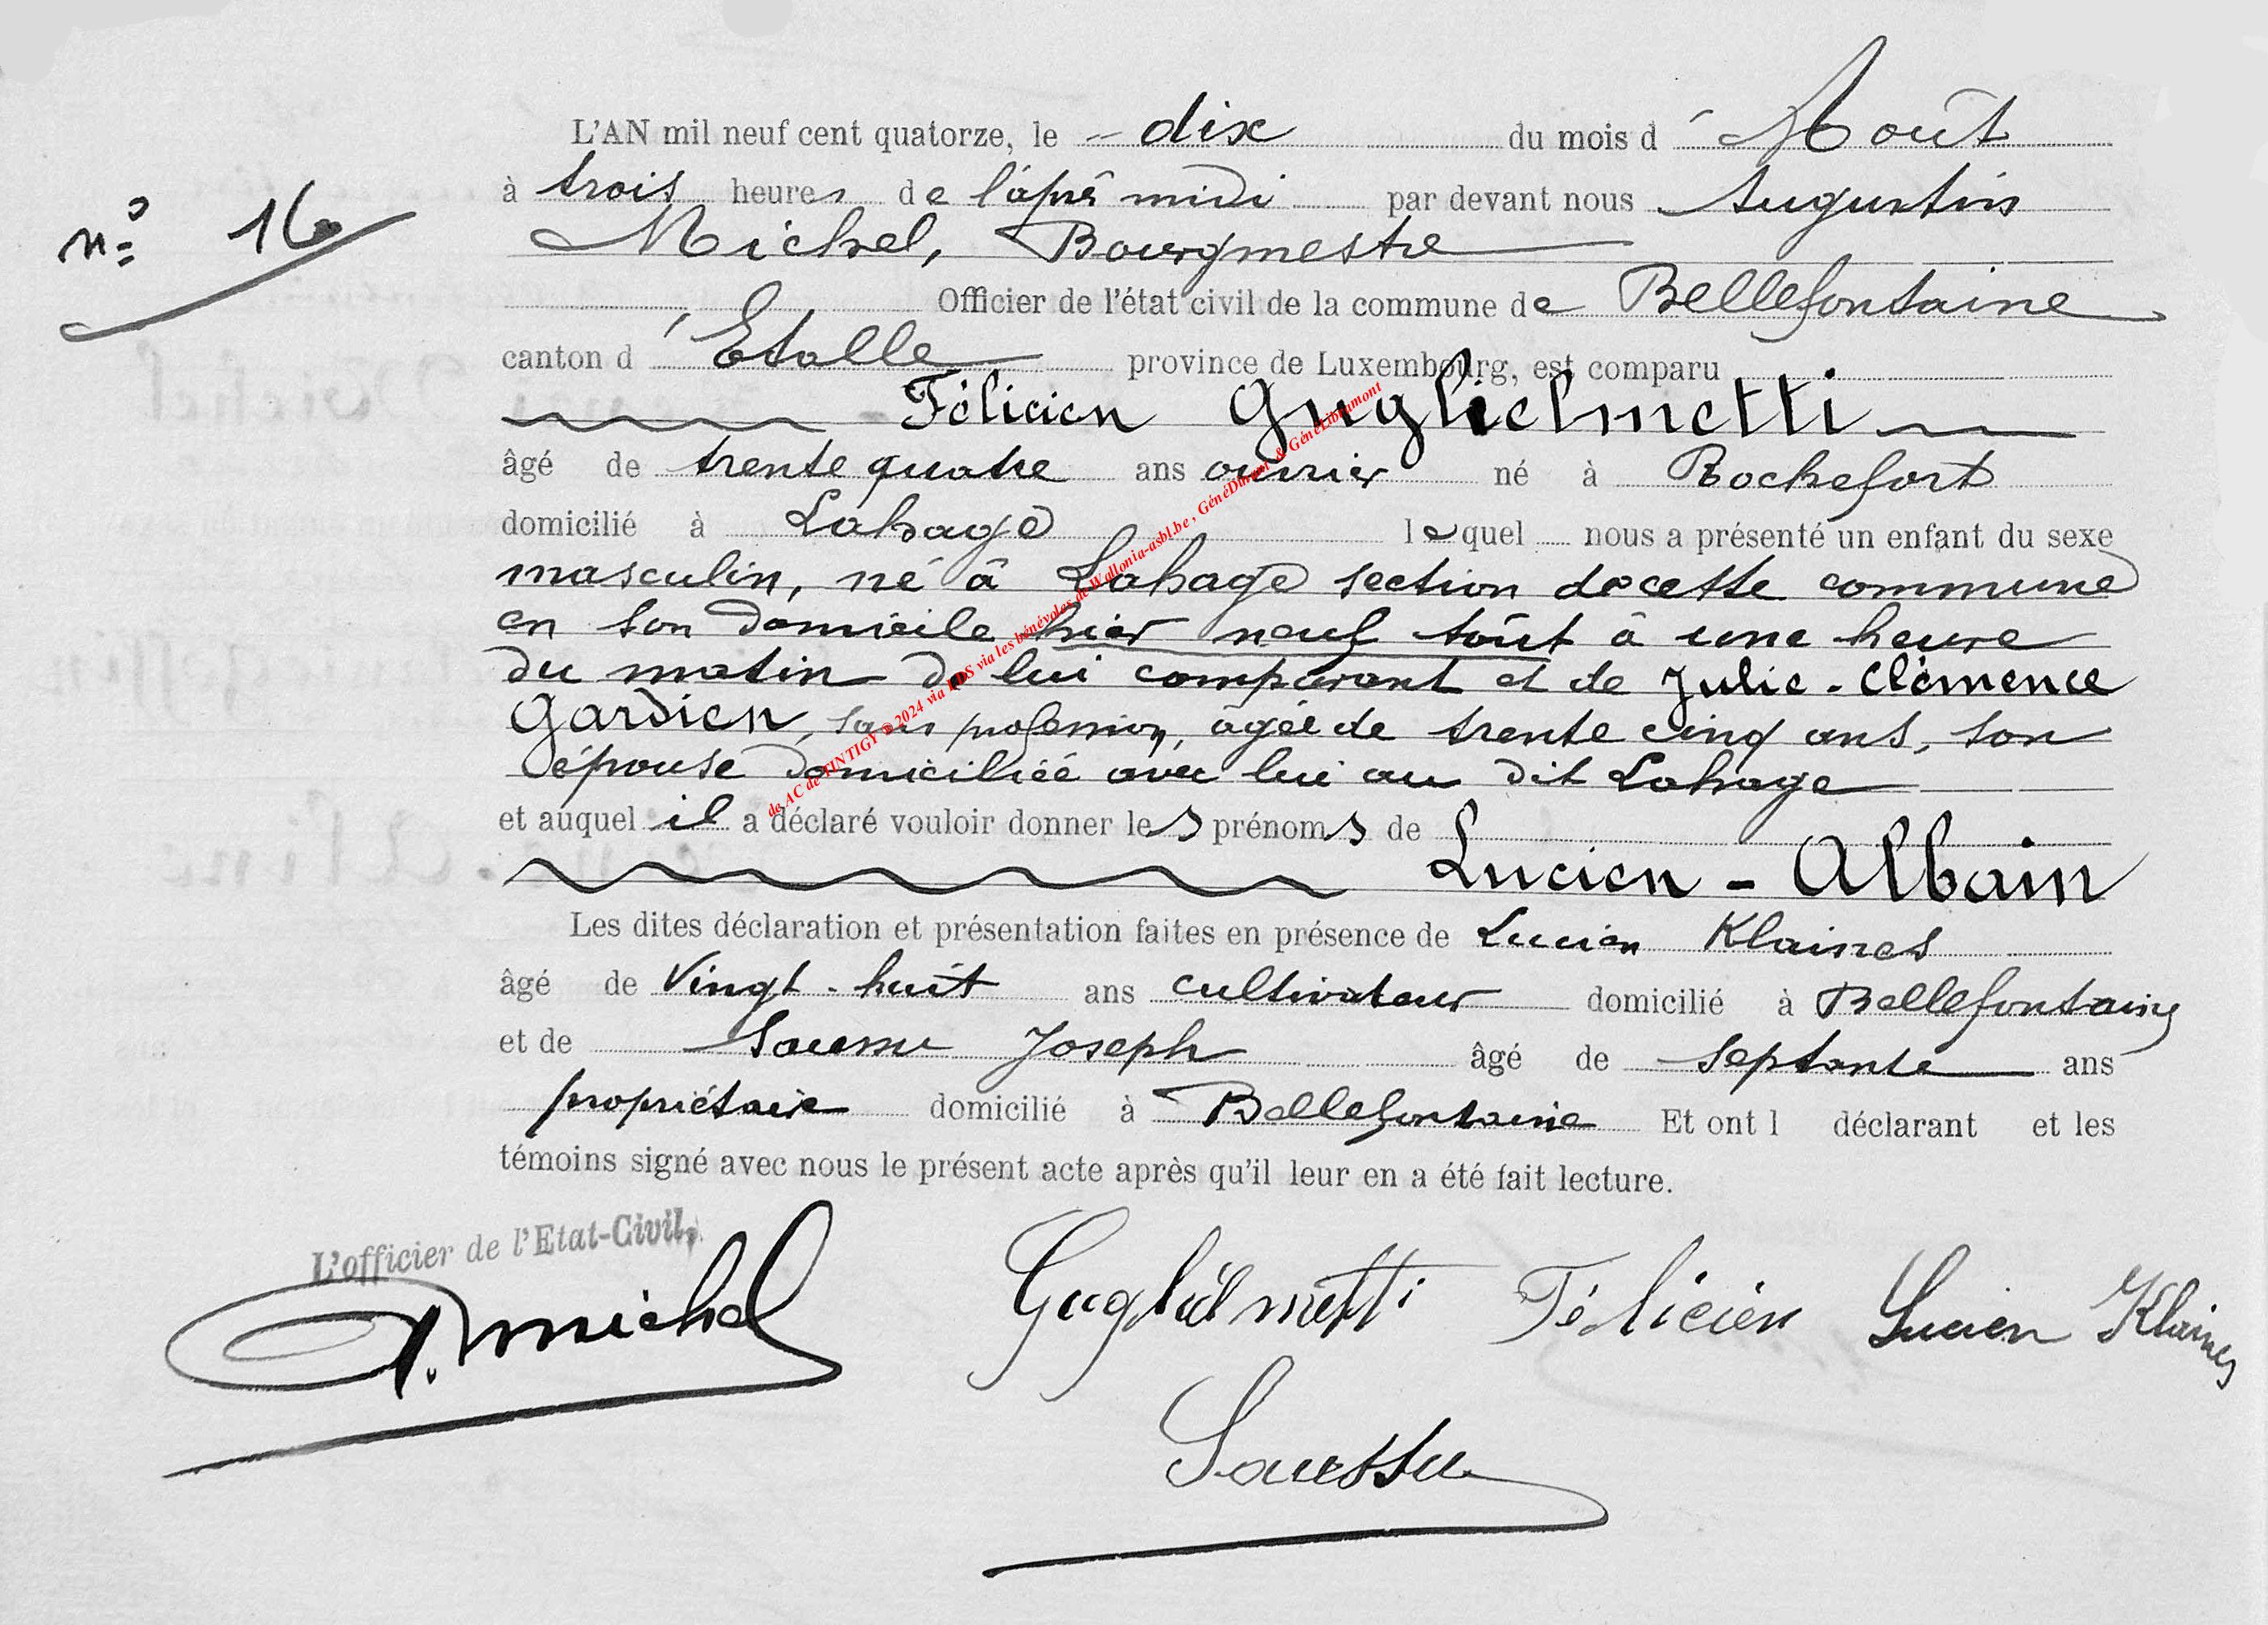 L'AN mil neuf cent quatorze, le dix du mois d'Août
à trois heures de l'après midi par devant nous Augustin
n° 16
Michel, Bourgmestre
Officier de l'état civil de la commune de Bellefontaine
canton d'Etalle province de Luxembourg, est comparu
Félicien Guglielmetti
âgé de trente quatre ans ouvrier né à Rochefort
domicilié à Lahage lequel nous a présenté un enfant du sexe
masculin, né à Lahage section de cette commune
en son domicile hier neuf août à une heure
du matin de lui comparant et de Julie - Clémence
Gardien, sans profession, âgée de trente cinq ans, son
épouse domiciliée avec lui au dit Lahage
et auquel il a déclaré vouloir donner les prénoms de
Lucien - Albain
Les dites déclaration et présentation faites en présence de Lucien Klaines
âgé de Vingt - huit ans cultivateur domicilié à Bellefontaine
et de Joseph âgé de septante ans
propriétaire domicilié à Bellefontaine Et ont l déclarant et les
témoins signé avec nous le présent acte après qu'il leur en a été fait lecture.
L'officier de l'Etat-Civil,
A. Michel Guglielmetti Félicien Lucien Klaines
Saussu
de AC de TINTIGY © 2024 via PDS via les bénévoles de Wallonia-asbl.be , GénéDinant & GénéLibramont